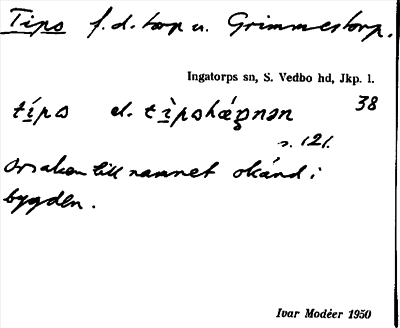 Tips f. d. torp u. Grimmestorp.
Ingatorps sn, S. Vedbo hd, Jkp. l.
tips el. 38
s. 121.
Orsaken till namnet okänd i
bygden.
Ivar Modéer 1950